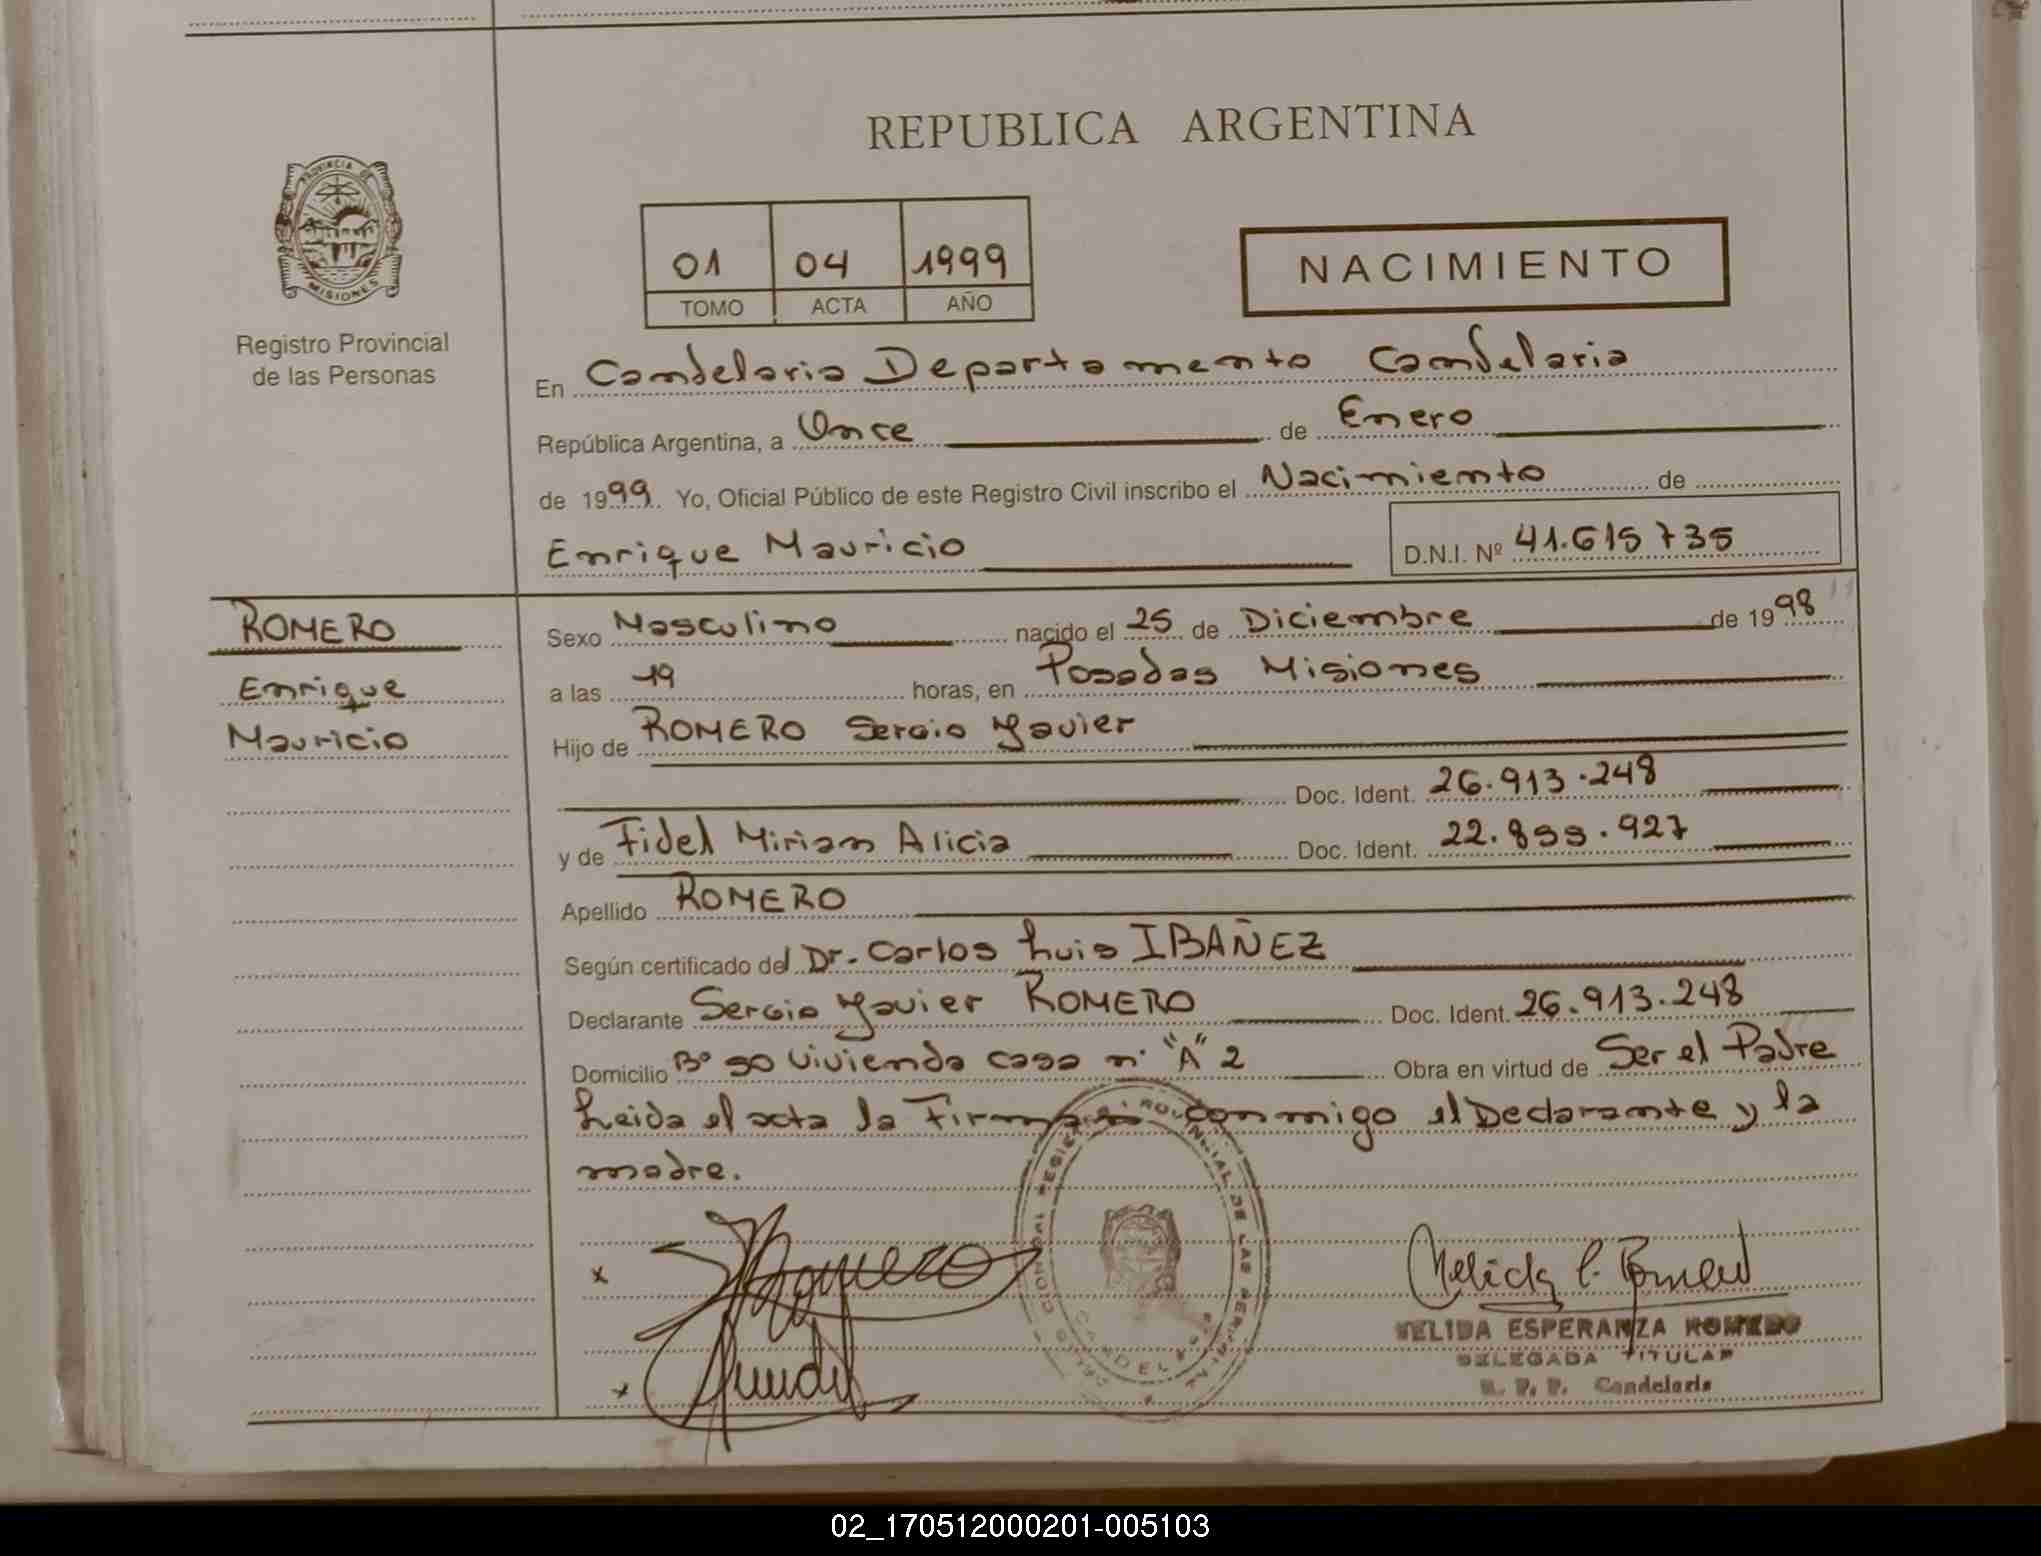 REPUBLICA ARGENTINA
PROVINCIA DE
MISIONES
Registro Provincial
de las Personas
01 04 1999
TOMO ACTA AÑO
NACIMIENTO
En Candelaria Departamento Candelaria
República Argentina, a Once de Enero
de 1999 Yo, Oficial Público de este Registro Civil inscribo el Nacimiento de
Enrique Mauricio D.N.I. Nº 41.615735
ROMERO
Enrique
Mauricio
Sexo Masculino nacido el 25 de Diciembre de 1998
a las 19 horas, en Posadas Misiones
Hijo de ROMERO Sergio Javier
Doc. Ident. 26.913.248
y de Fidel Mirian Alicia Doc. Ident. 22.899.927
Apellido ROMERO
Según certificado del Dr. Carlos Luis IBAÑEZ
Declarante Sergio Javier ROMERO Doc. Ident. 26.913.248
Domicilio Bº 90 vivienda casa nº "A" 2 Obra en virtud de Ser el Padre
Leida el acta la Firman conmigo el Declarante y la
madre.
x Romero
x
NELIDA ESPERANZA ROMERO
DELEGADA TITULAR
R. P. P. Candelaria
02_170512000201-005103